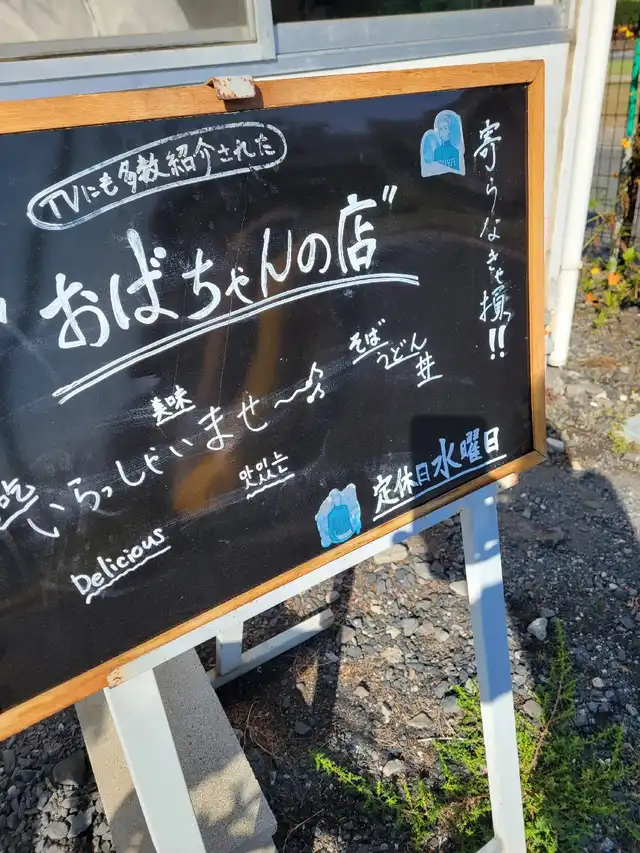 TVにも多数紹介された
"おばちゃんの店"
寄らなきゃ損!!
そば
うどん
丼
美味
いらっしゃいませ〜♪
吃
맛있는
Delicious
定休日水曜日